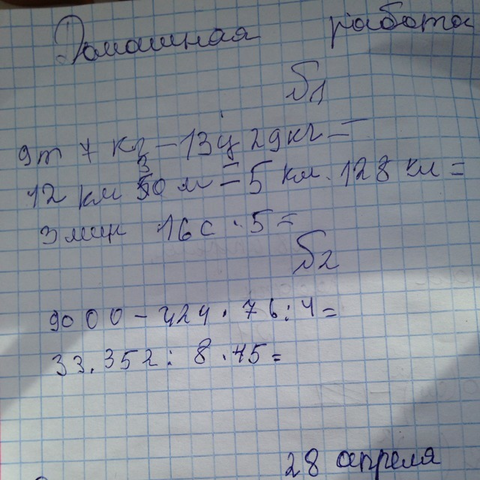 Домашная работа
№1
9т 7 кг – 13ц 29кг =
12 км 30 м – 5 км. 128 км =
3 мин 16 с · 5 =
№2
9000 – 424 · 76 : 4 =
33.352 : 8 · 45 =
28 апреля